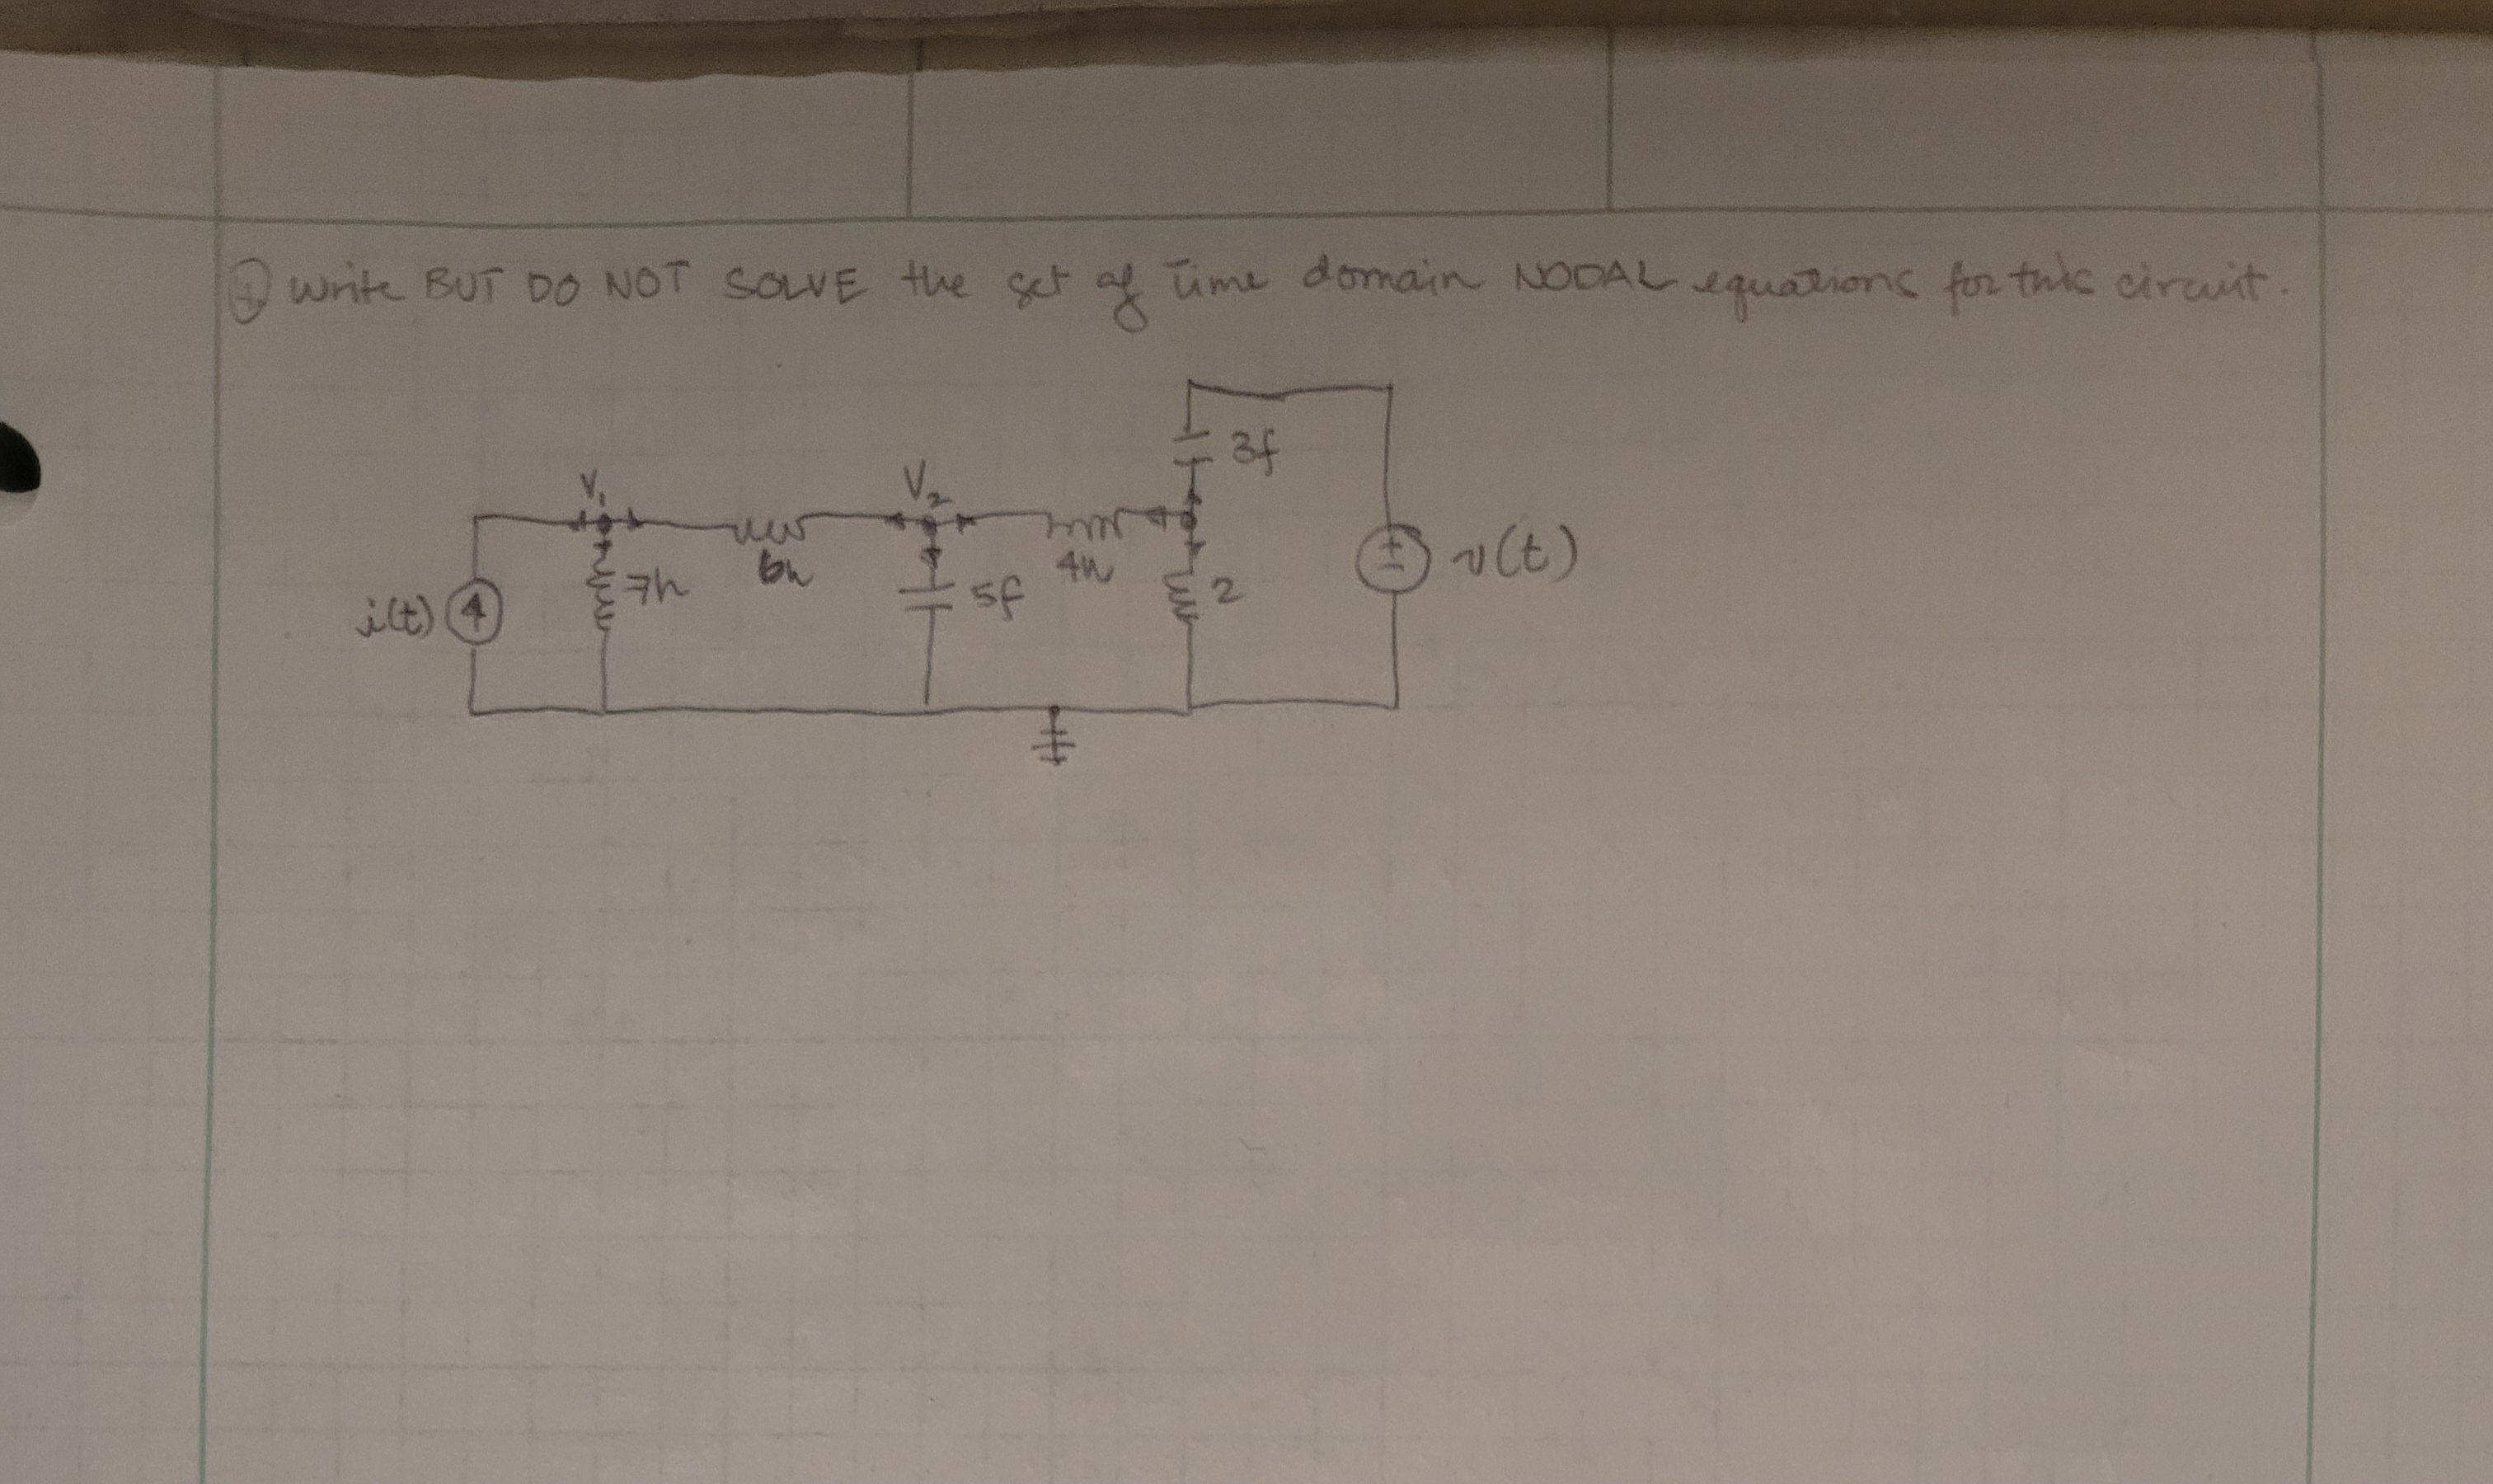 ① Write BUT DO NOT SOLVE the set of Time domain NODAL equations for this circuit.
3f
V₁
V₂
7h
6h
5f
4h
2
v(t)
i(t)